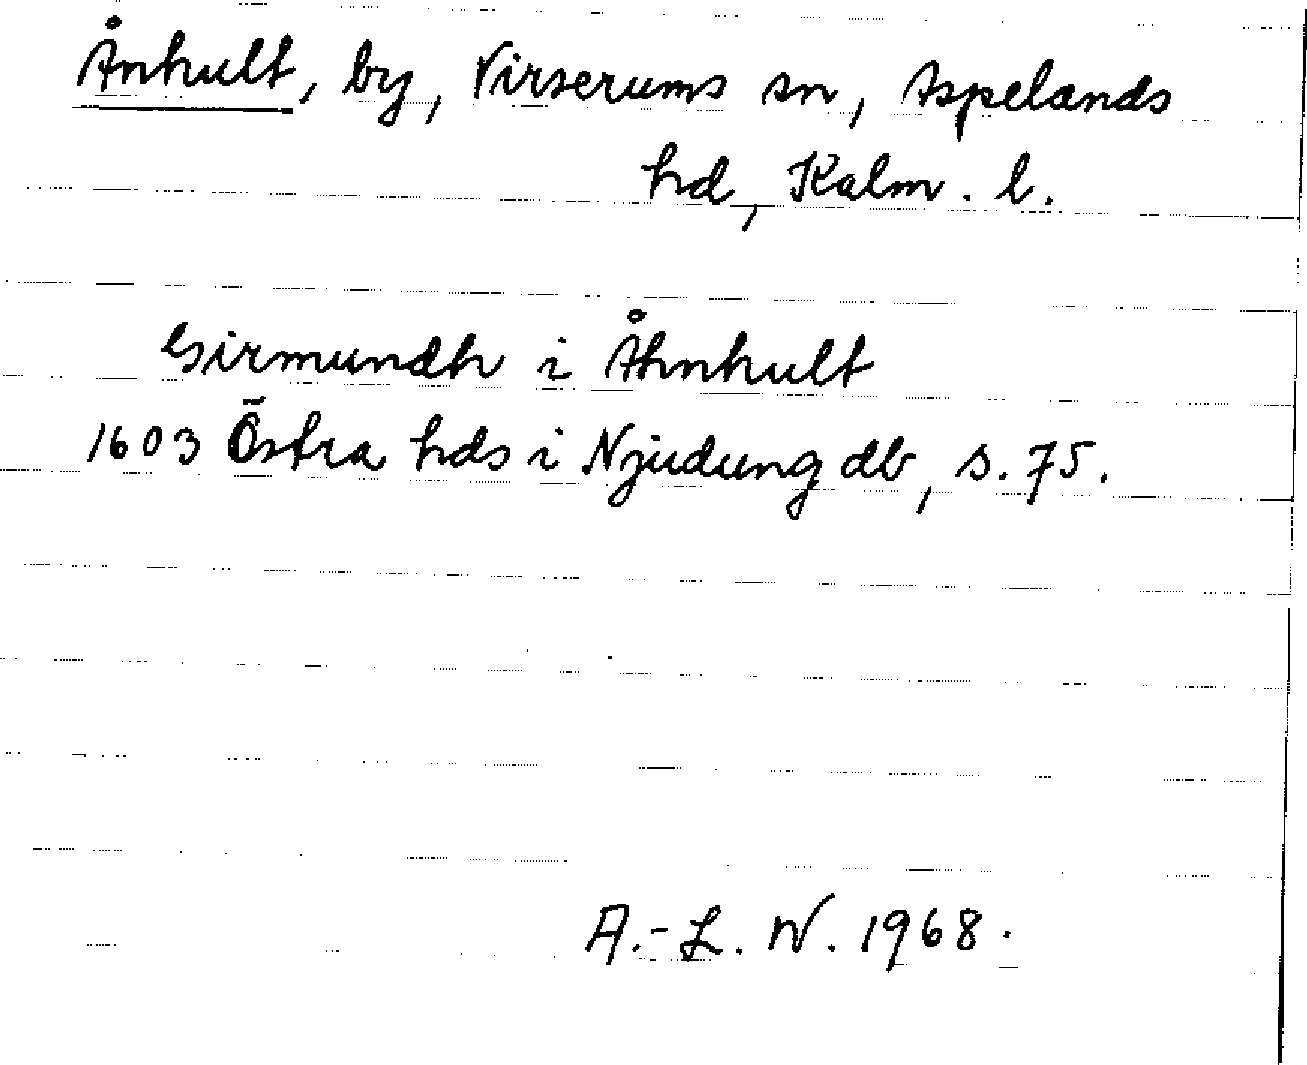 Ånhult, by, Virserums sn, Aspelands
hd, Kalm. l.
Girmundh i Åhnhult
1603 Östra hds i Njudung db, s. 75.
A.-L. W. 1968.